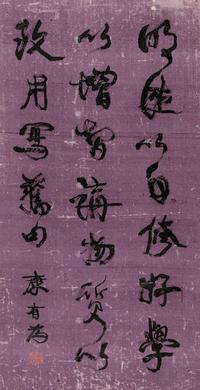 明德以自修好學
以增智講物質以
致用寫舊句
康有為